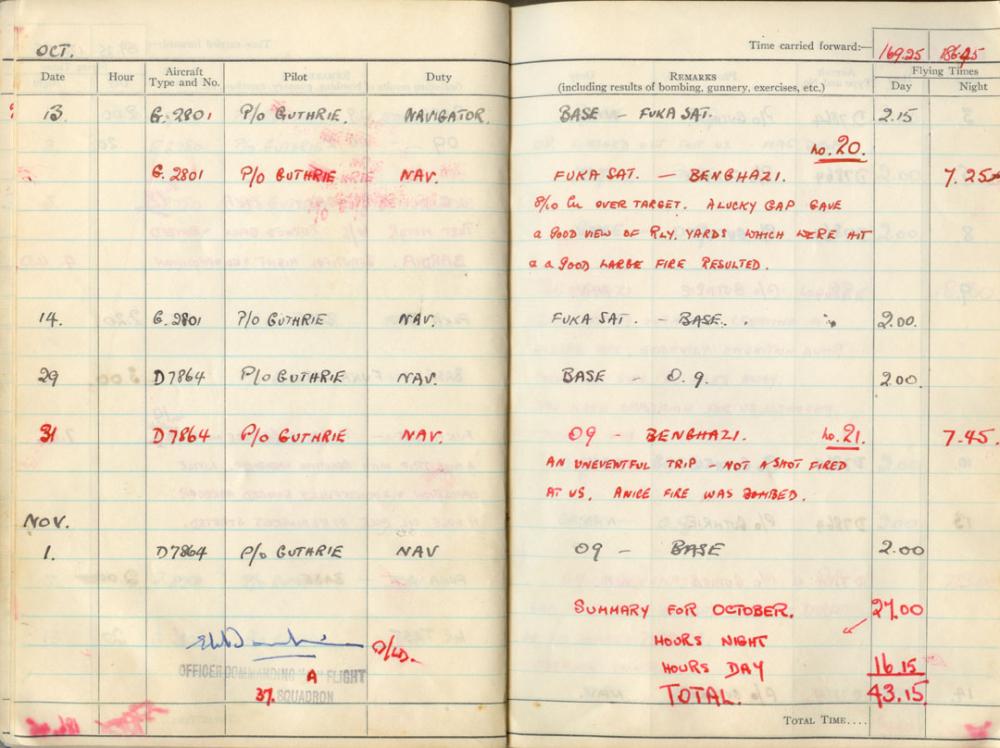 OCT.
Time carried forward:— 169.25 186.45
Date Hour Aircraft Type and No. Pilot Duty REMARKS (including results of bombing, gunnery, exercises, etc.) Flying Times Day Night
13 G.2801 P/o GUTHRIE. NAVIGATOR. BASE - FUKA SAT. 2.15
No. 20.
G.2801 P/o GUTHRIE NAV. FUKA SAT. - BENGHAZI. 7.25
8/10 Cu OVER TARGET. A LUCKY GAP GAVE
a GOOD VIEW OF RLY. YARDS WHICH WERE HIT
a a GOOD LARGE FIRE RESULTED.
14. G.2801 P/o GUTHRIE NAV. FUKA SAT. - BASE. 2.00.
29 D7864 P/o GUTHRIE NAV. BASE - O.9. 2.00.
31 D7864 P/o GUTHRIE NAV. 09 - BENGHAZI. No. 21. 7.45.
AN UNEVENTFUL TRIP - NOT A SHOT FIRED
AT US. A NICE FIRE WAS BOMBED.
NOV.
1. D7864 P/o GUTHRIE NAV 09 - BASE 2.00
SUMMARY FOR OCTOBER. 27.00
HOURS NIGHT
HOURS DAY 16.15
TOTAL. 43.15.
OFFICER COMMANDING "A" FLIGHT
37. SQUADRON
TOTAL TIME....